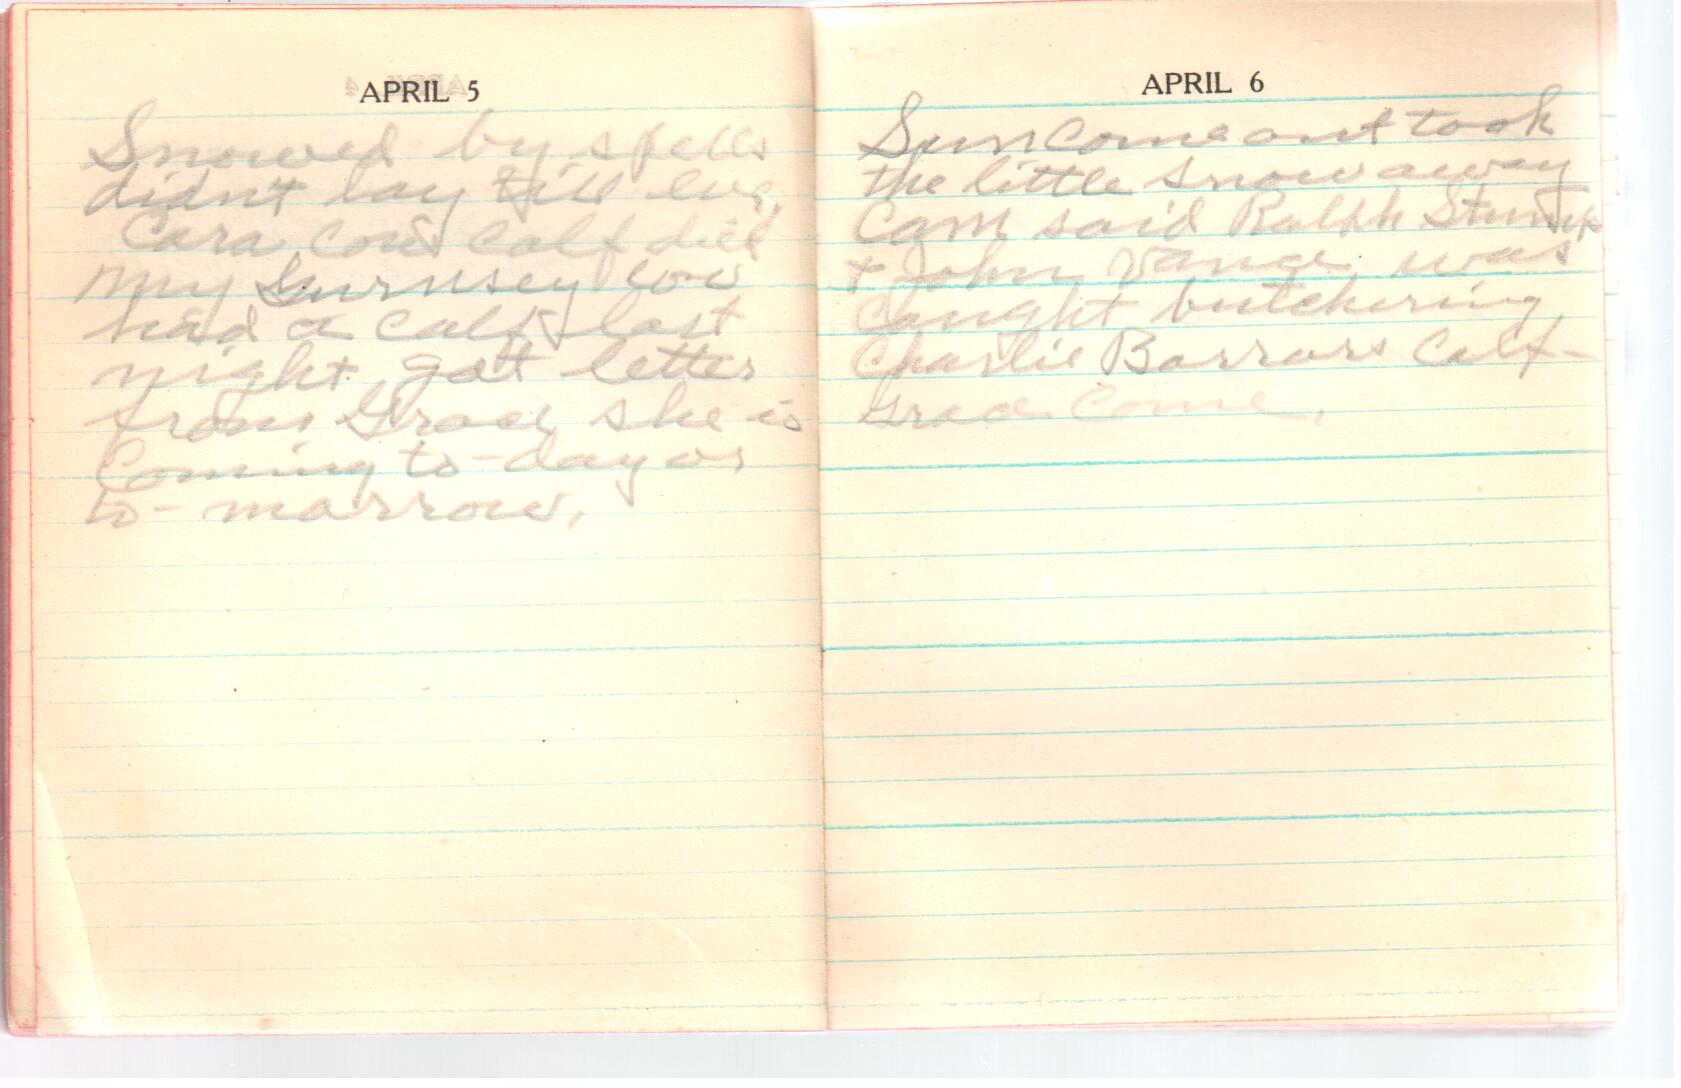 APRIL 5
Snowed by spells
didn't lay till eve,
Cara cow calf died
My Gurnsey cow
had a calf last
night, got letter
from Grace, she is
Coming to-day or
to-marrow,
APRIL 6
Sun Come out took
the little snow away
Cam said Ralph Stump
+ John Vance, was
Caught butchering
Charlie Barrars Calf-
Grace Come,